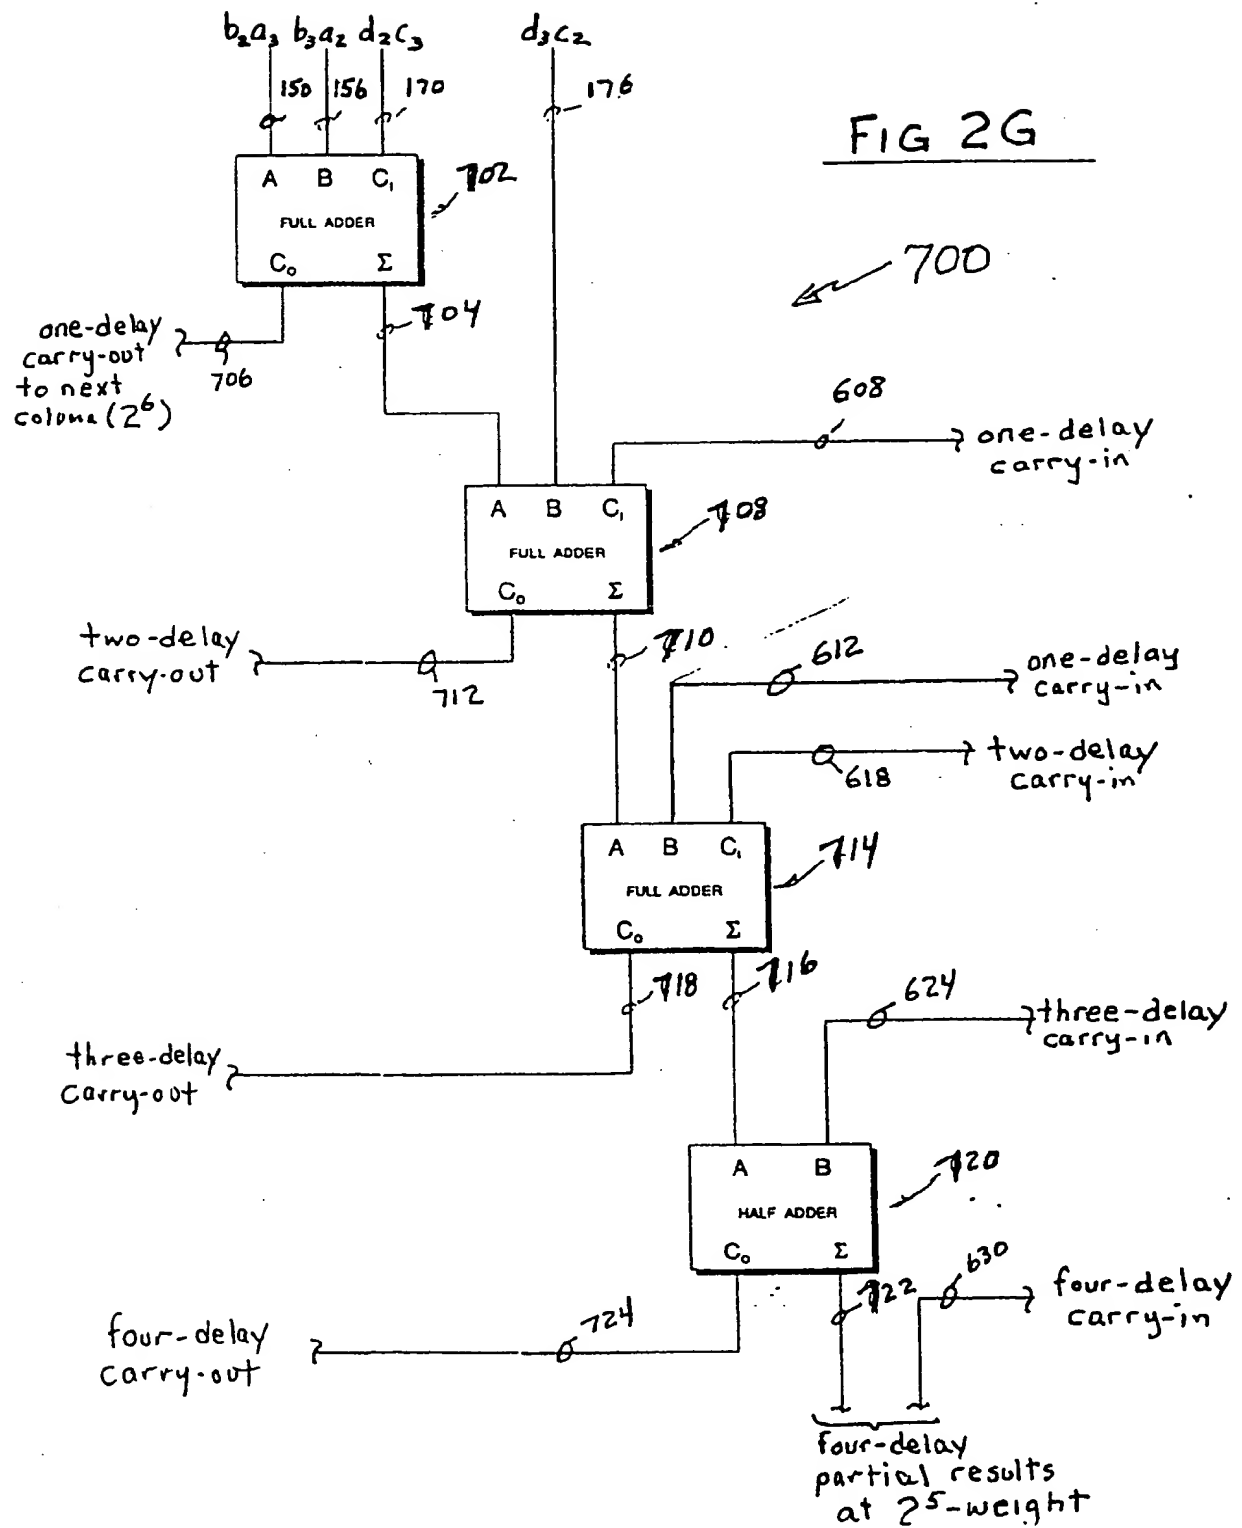 b₂a₃ b₃a₂ d₂c₃ d₃c₂
150 156 170 176
FIG 2G
A B C₁
FULL ADDER
C₀ Σ
702
700
704
one-delay
carry-out
to next
column (2⁶)
706
608
one-delay
carry-in
A B C₁
FULL ADDER
C₀ Σ
708
two-delay
carry-out
712
710
612
one-delay
carry-in
618
two-delay
carry-in
A B C₁
FULL ADDER
C₀ Σ
714
718
716
624
three-delay
carry-in
three-delay
carry-out
A B
HALF ADDER
C₀ Σ
720
722
630
four-delay
carry-in
724
four-delay
carry-out
four-delay
partial results
at 2⁵-weight